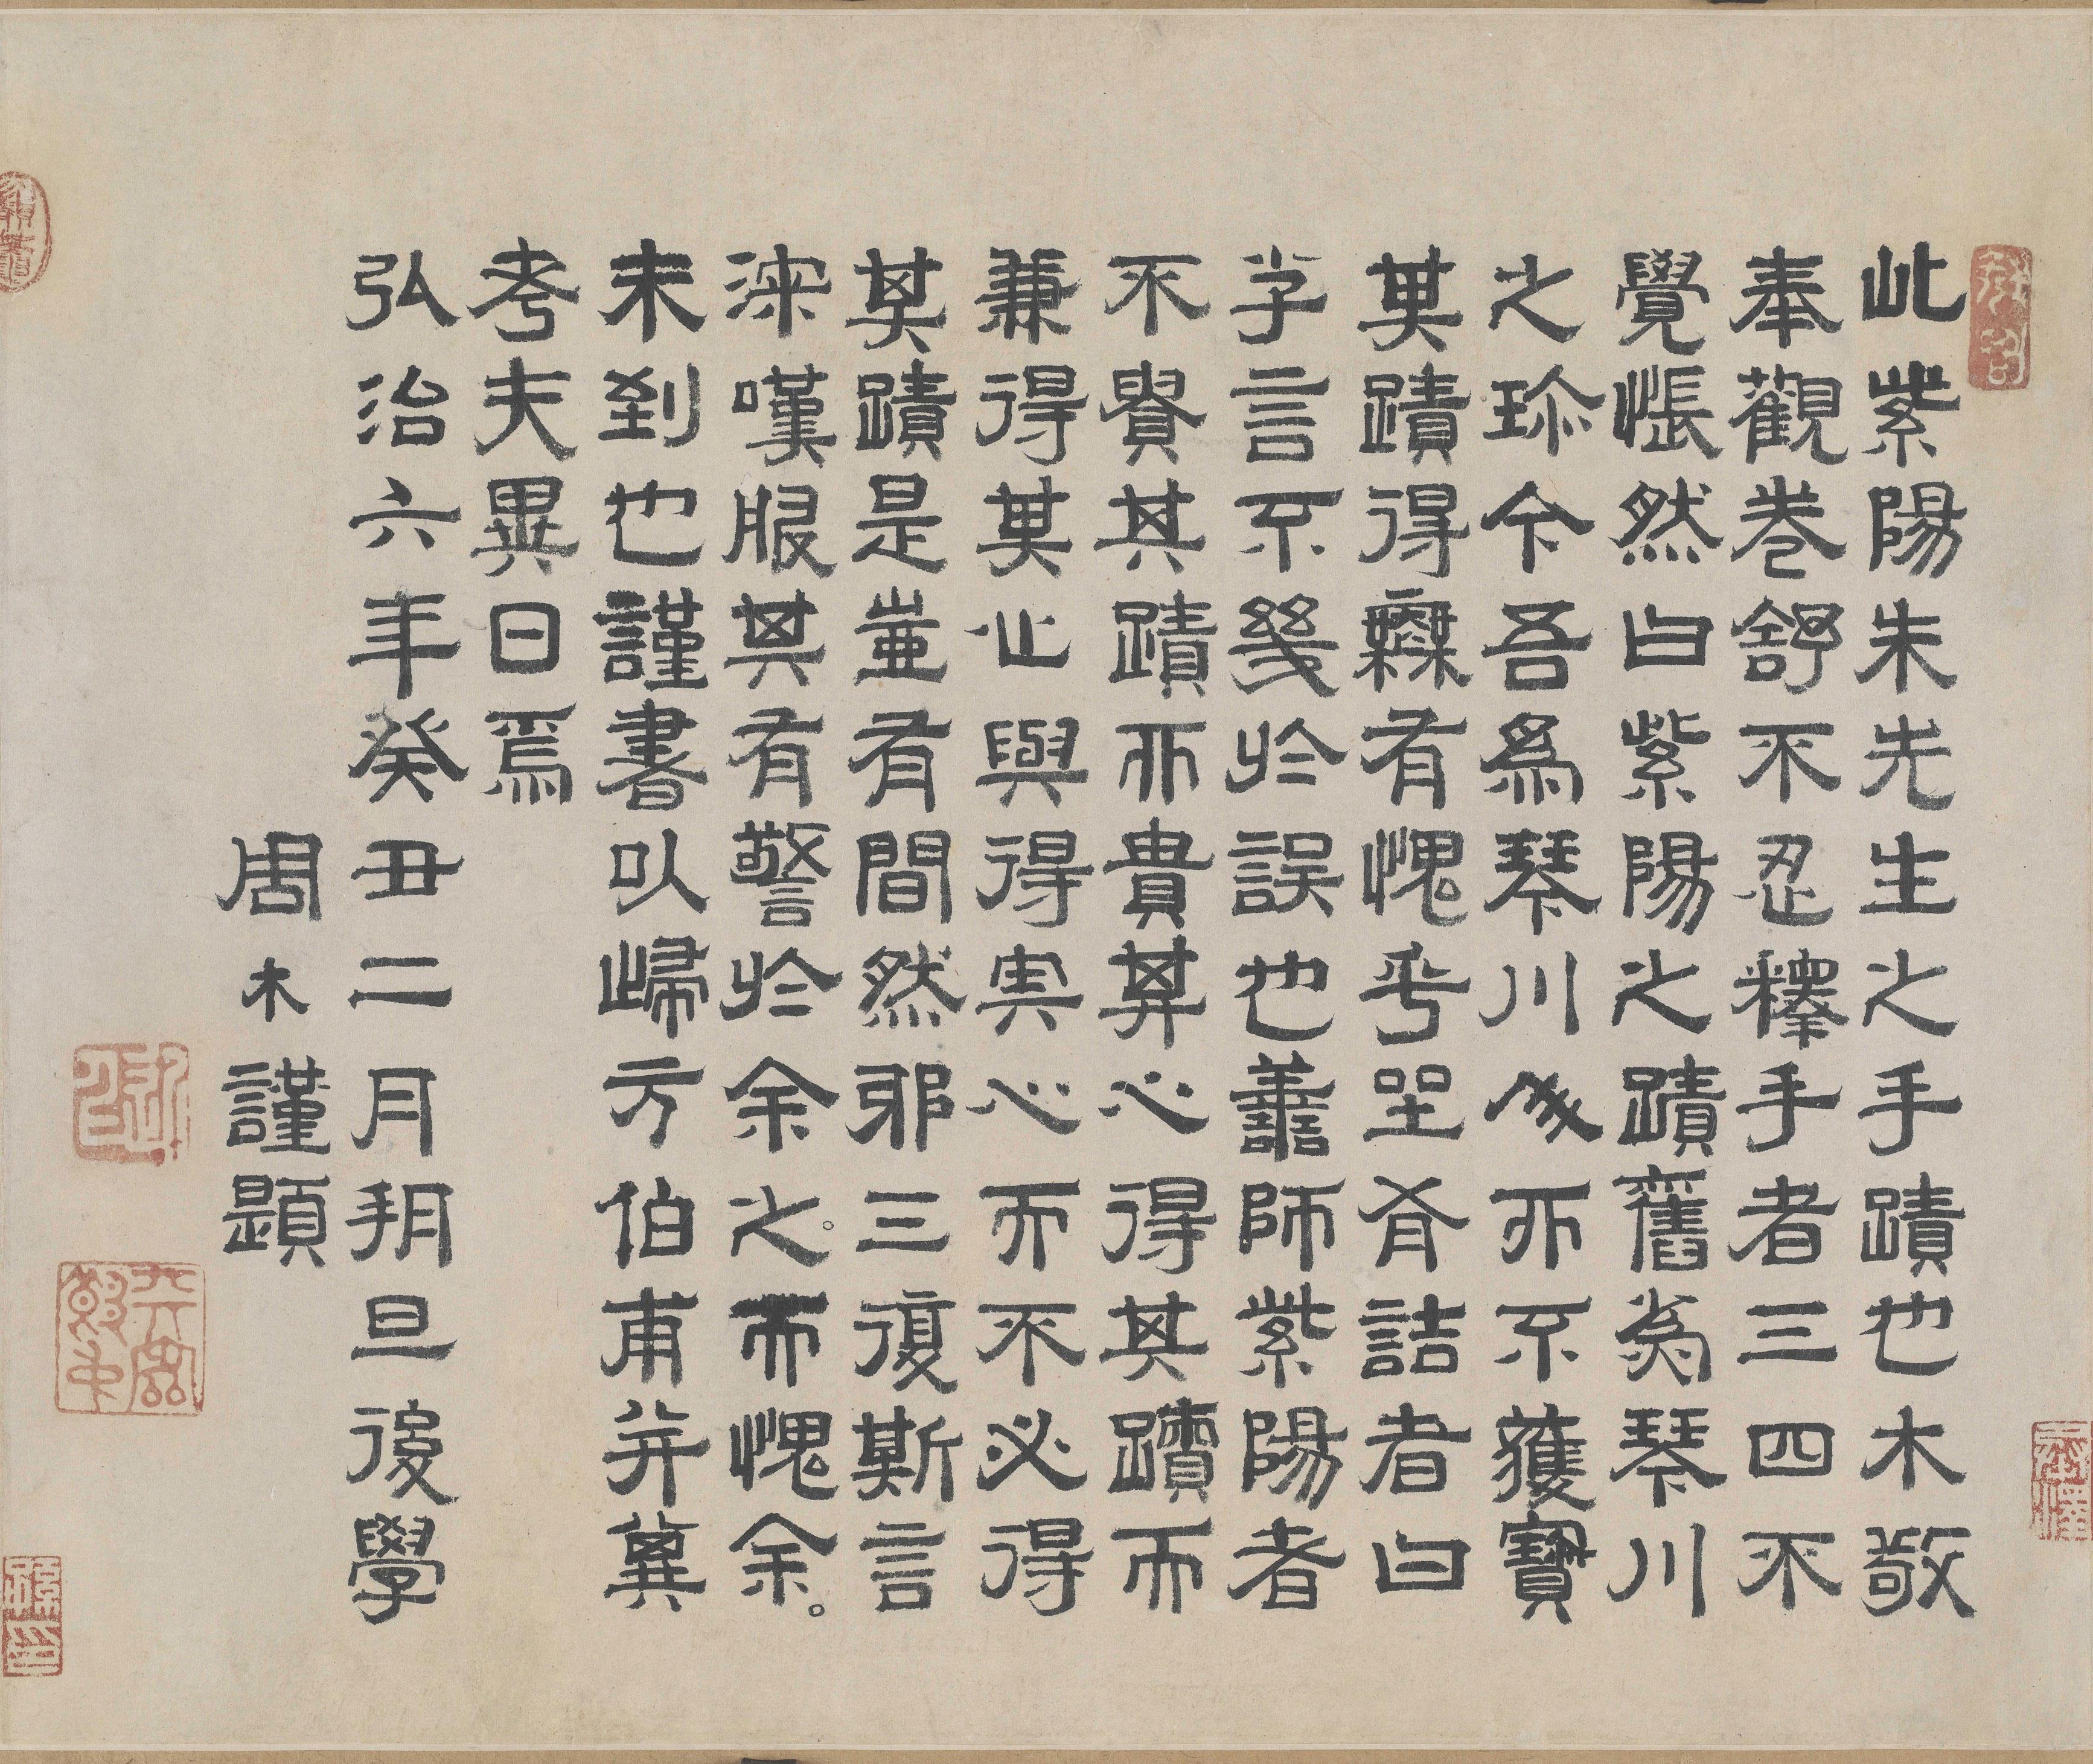 此紫陽朱先生之手蹟也木敬
奉觀卷舒不忍釋手者三四不
覺悵然曰紫陽之蹟舊為琴川
之珍今吾為琴川人而不獲寶
其蹟得無有愧乎坐有詰者曰
字言不幾於誤也善師紫陽者
不貴其蹟而貴其心得其蹟而
兼得其心與得其心而不必得
其蹟是豈有間然邪三復斯言
深嘆服其有警於余之而愧余
未到也謹書以歸方伯甫并冀
考夫異日焉
弘治六年癸丑二月朔旦後學
周木謹題